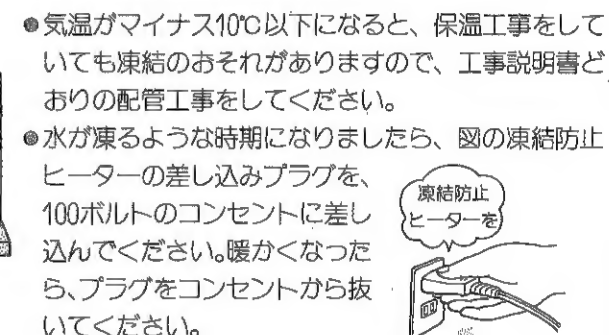 ●気温がマイナス10℃以下になると、保温工事をして
いても凍結のおそれがありますので、工事説明書ど
おりの配管工事をしてください。
●水が凍るような時期になりましたら、図の凍結防止
ヒーターの差し込みプラグを、
100ボルトのコンセントに差し
込んでください。暖かくなった
ら、プラグをコンセントから抜
いてください。
凍結防止
ヒーターを